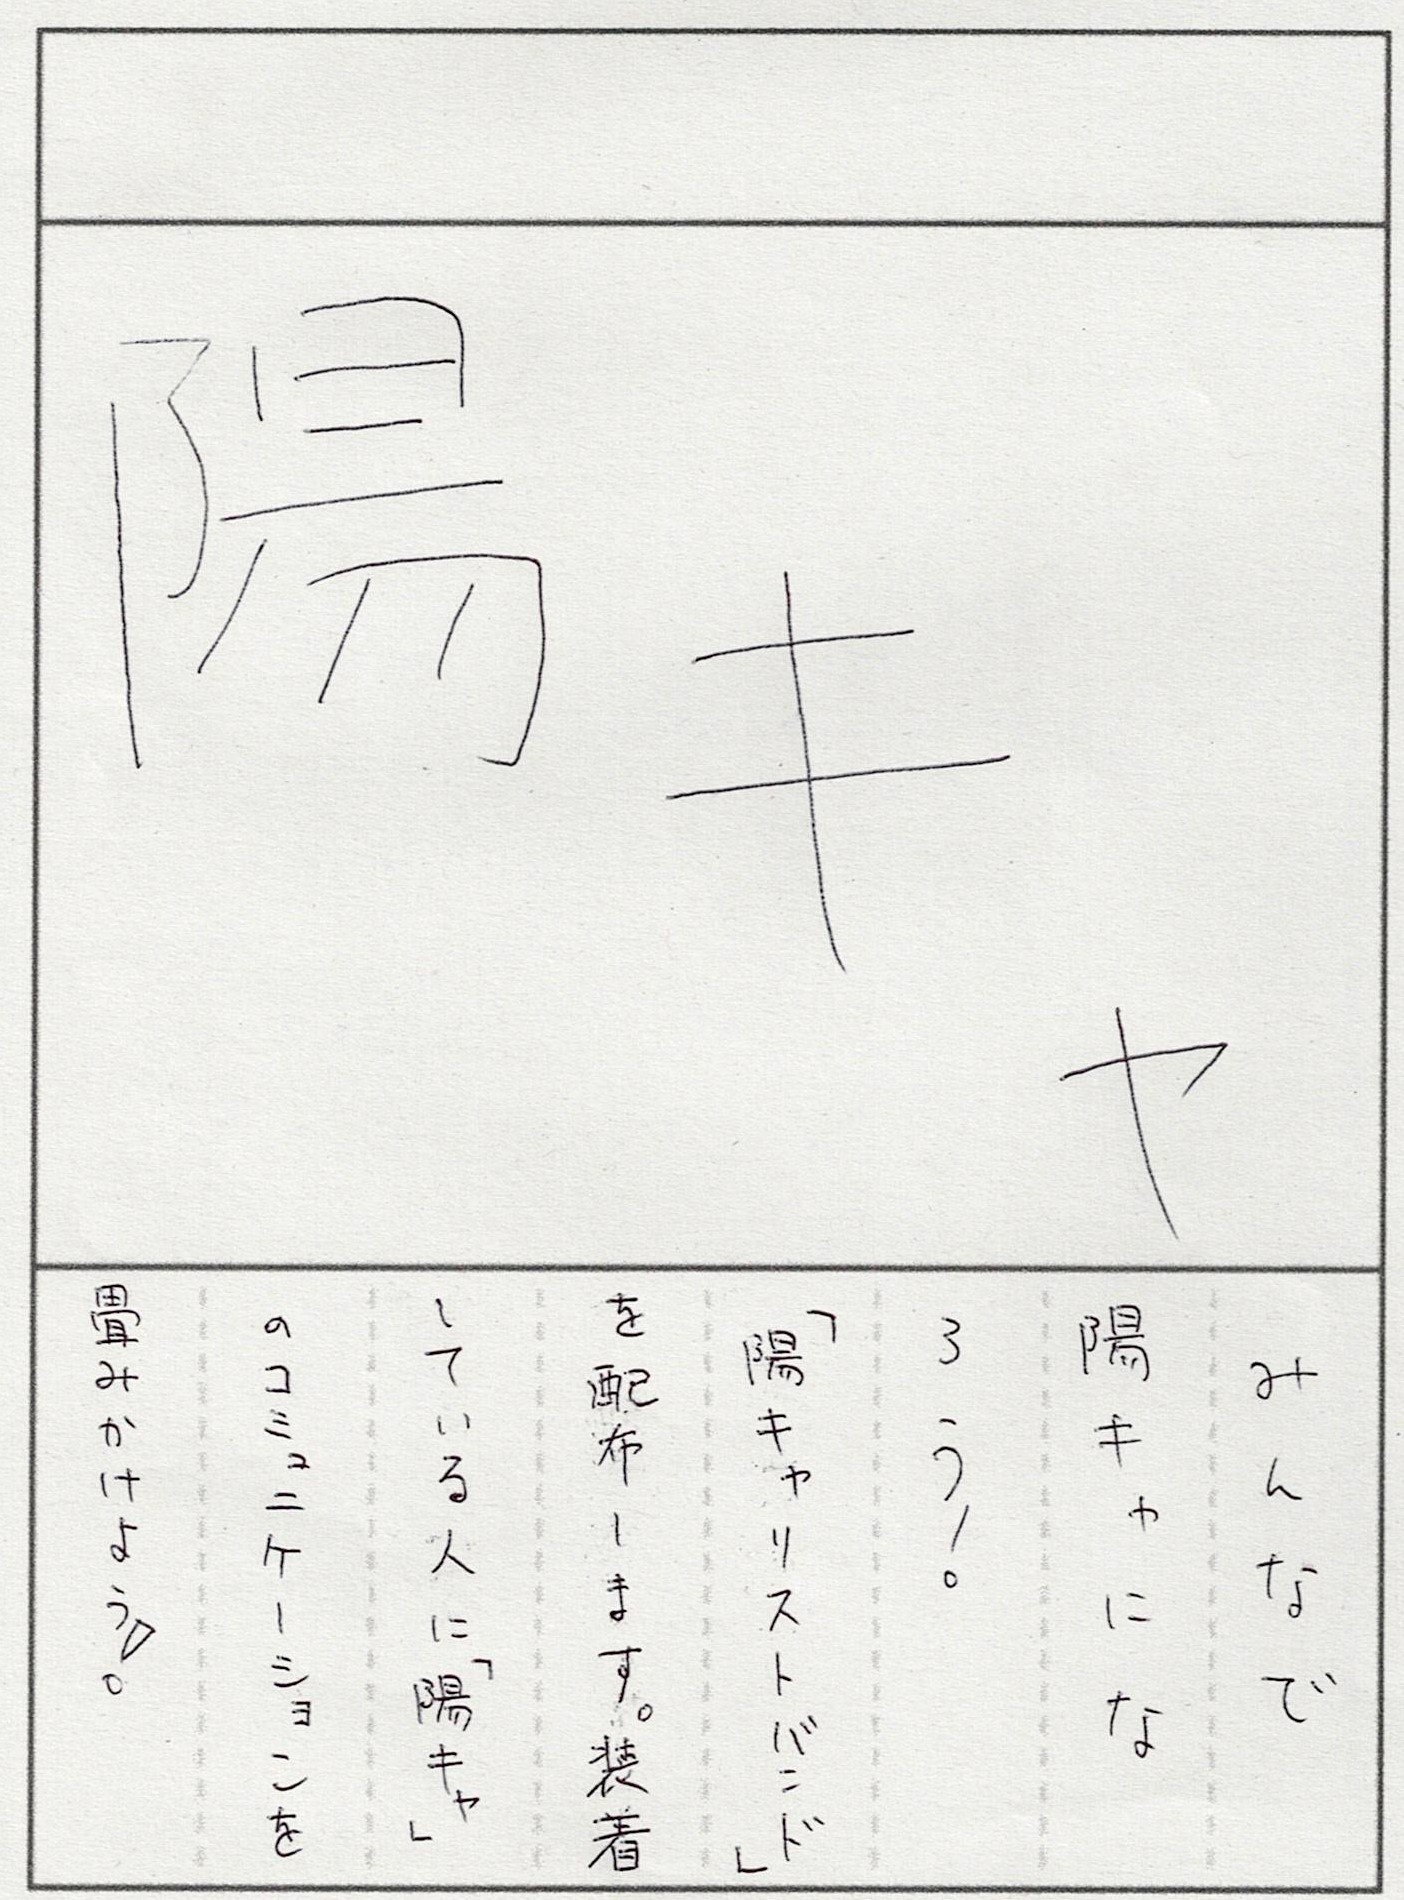 陽キャ
みんなで
陽キャにな
ろう!。
「陽キャリストバンド」
を配布します。装着
している人に「陽キャ」
のコミュニケーションを
畳みかけよう!。